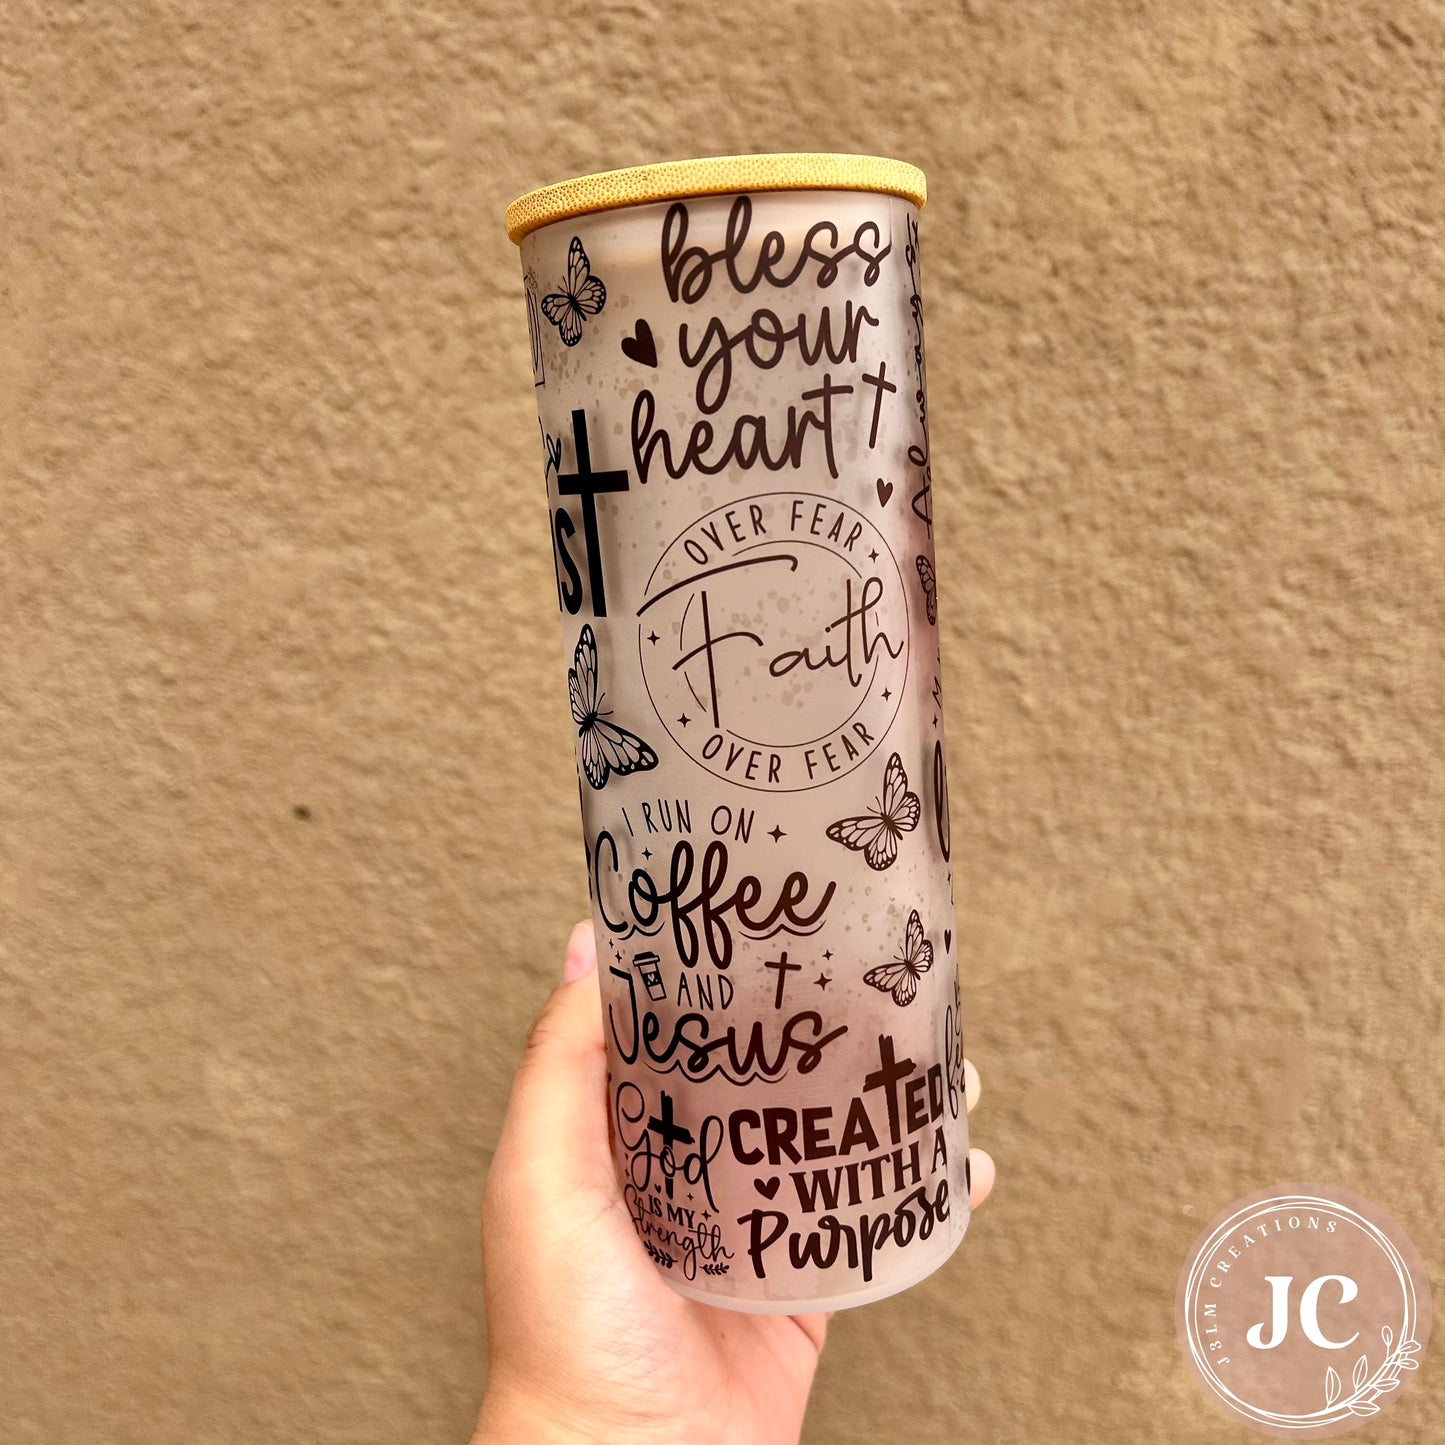 bless
your
heart
OVER FEAR
Faith
OVER FEAR
I RUN ON
Coffee
AND
Jesus
God
IS MY
Strength
CREATED
WITH A
Purpose
J&LM CREATIONS
JC